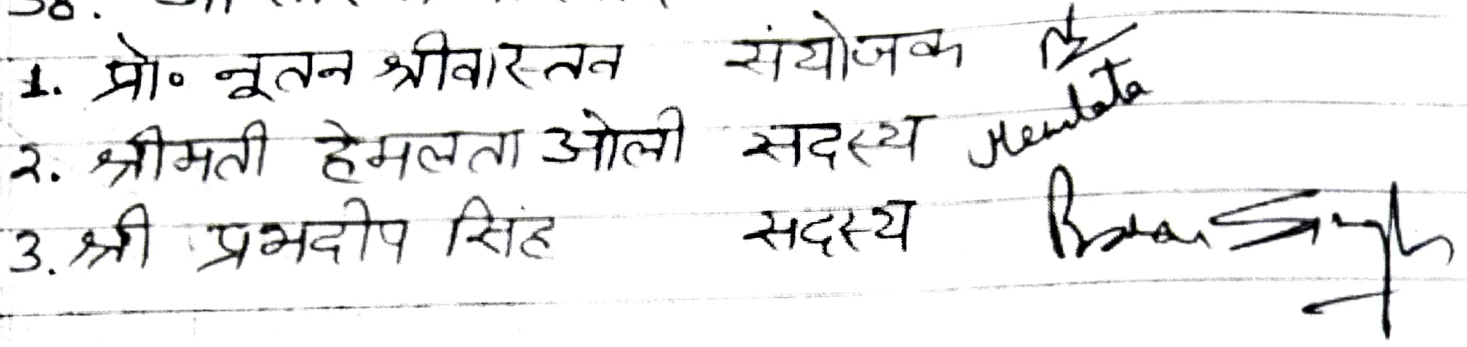 1. प्रो० नूतन श्रीवास्तव संयोजक
2. श्रीमती हेमलता ओली सदस्य Hemlata
3. श्री प्रभदीप सिंह सदस्य Singh